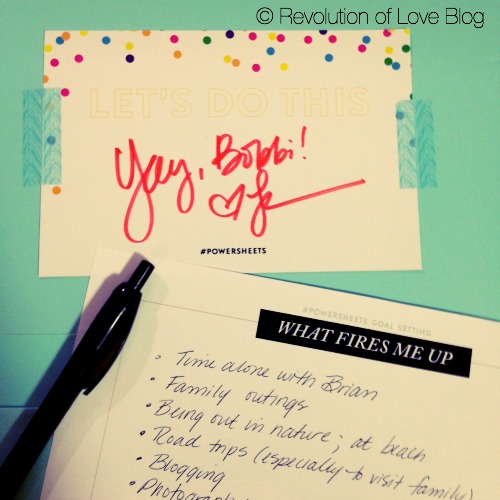 © Revolution of Love Blog
LET'S DO THIS
Yay, Bobbi!
#POWERSHEETS
#POWERSHEETS GOAL SETTING
WHAT FIRES ME UP
• Time alone with Brian
• Family outings
• Being out in nature; at beach
• Road trips (especially to visit family)
• Blogging